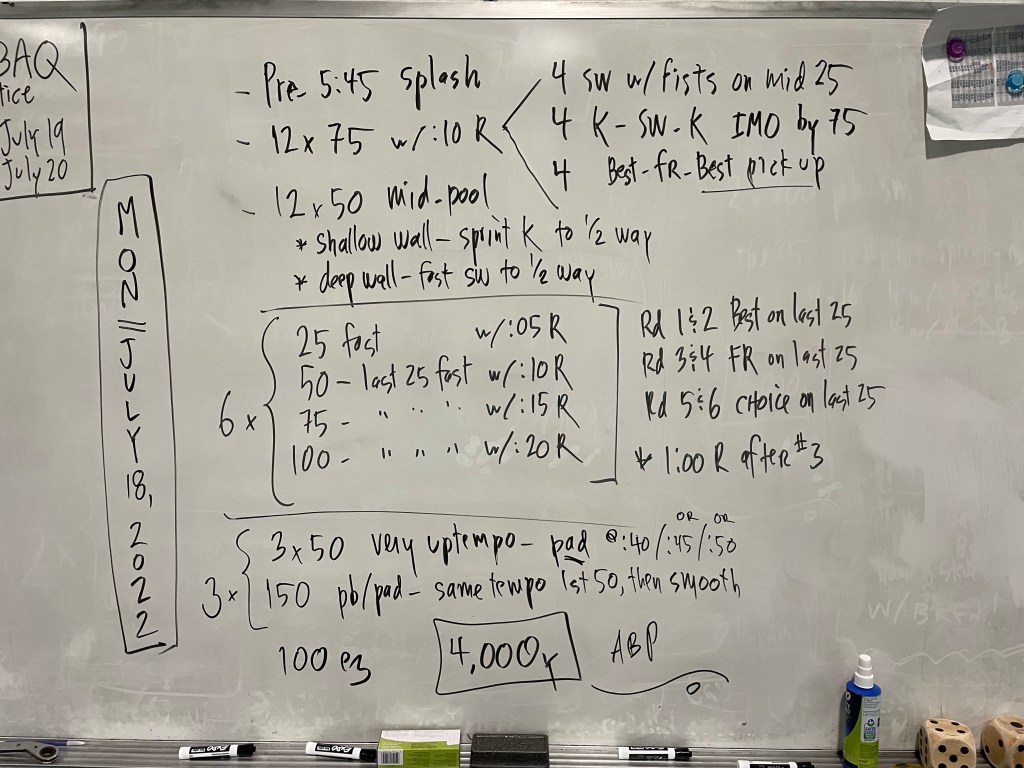 BAQ
tice
July 19
July 20
MON JULY 18, 2022
- Pre- 5:45 splash
- 12 x 75 w/:10 R
4 SW w/fists on mid 25
4 K-SW-K IMO by 75
4 Best-FR-Best pick up
- 12 x 50 mid-pool
* shallow wall - sprint K to 1/2 way
* deep wall - fast sw to 1/2 way
6 x
25 fast w/:05 R
50 - last 25 fast w/:10 R
75 - " " " w/:15 R
100 - " " " w/:20 R
Rd 1 & 2 Best on last 25
Rd 3 & 4 FR on last 25
Rd 5 & 6 CHOICE on last 25
* 1:00 R after #3
3 x
3 x 50 very uptempo - pad @:40 / OR :45 / OR :50
150 pb/pad - same tempo 1st 50, then smooth
100 ez
4,000y
ABP
EXPO
EXPO